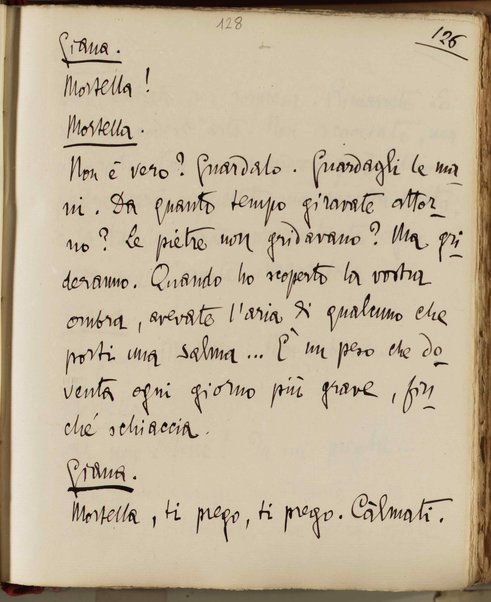 128
126
Giana.
Mortella!
Mortella.
Non è vero? Guardalo. Guardagli le ma-
ni. Da quanto tempo giravate attor-
no? Le pietre non gridavano? Ma gri-
deranno. Quando ho scoperto la vostra
ombra, avevate l'aria di qualcuno che
porti una salma... È un peso che do-
venta ogni giorno più grave, fin-
ché schiaccia.
Giana.
Mortella, ti prego, ti prego. Càlmati.